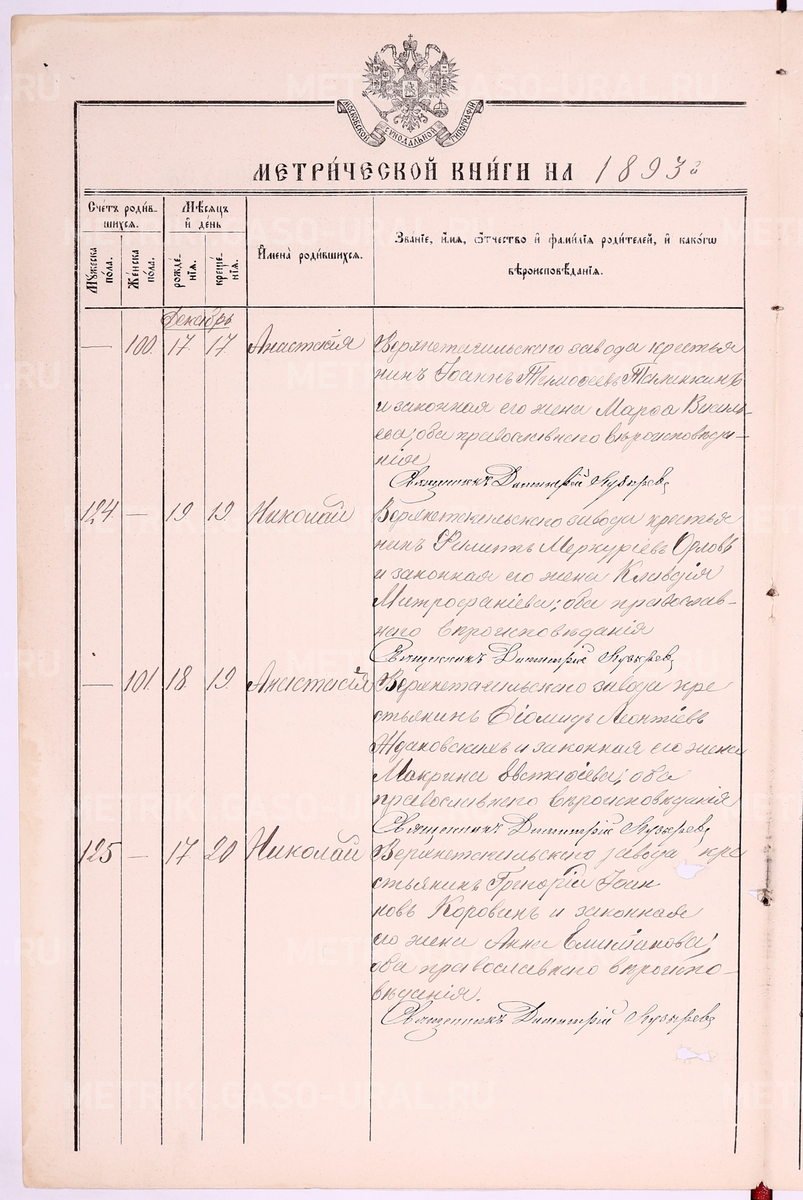 МОСКОВСКОЙ СѴНОДАЛЬНОЙ ТИПОГРАФІИ
МЕТРИ́ЧЕСКОЙ КНИ́ГИ НА 1893 й
Счетъ роди́в-
шихся.
Мѣсяцъ
и҆ де́нь
Мꙋжеска
по́ла.
Же́нска
по́ла.
рожде́-
нїѧ.
креще́-
нїѧ.
И҆мена̀ роди́вшихся.
Зва́нїе, и҆́мѧ, ѻ҆́тчество и҆ фами́лїѧ роди́телей, и҆ како́гѡ
вѣроисповѣ́данїѧ.
Декабрь
— 100. 17 17 Анастасія Верхнетагильскаго завода крестья
нинъ Іоаннъ Тимоѳеевъ
и законная его жена Марѳа Василь-
ева; оба православнаго вѣроисповѣда-
нія
Священникъ Димитрій
124 — 19 19 Николай Верхнетагильскаго завода крестья
нинъ Филиппъ Меркуріевъ Орловъ
и законная его жена Клавдія
Митрофаніева; оба православ-
наго вѣроисповѣданія
Священникъ Димитрій
— 101. 18 19 Анастасія Верхнетагильскаго завода кре
стьянинъ Діомидъ Леонтіевъ
Ждановскихъ и законная его жена
Макрина Евстафіева; оба
православнаго вѣроисповѣданія
Священникъ Димитрій
125 — 17 20 Николай Верхнетагильскаго завода кре
стьянинъ Григорій Іоан
новъ Коровинъ и законная
его жена Анна
оба православнаго вѣроиспо-
вѣданія.
Священникъ Димитрій
METRIKI.GASO-URAL.RU